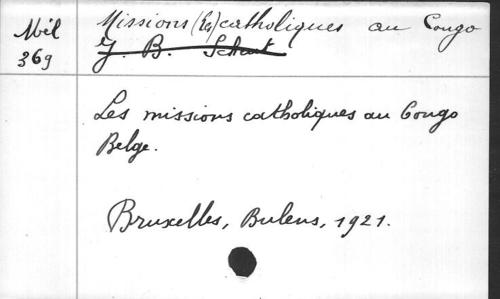 Mél
369
Missions (Les) catholiques au Congo
J. B. Schaut
Les missions catholiques au Congo
Belge.
Bruxelles, Bulens, 1921.